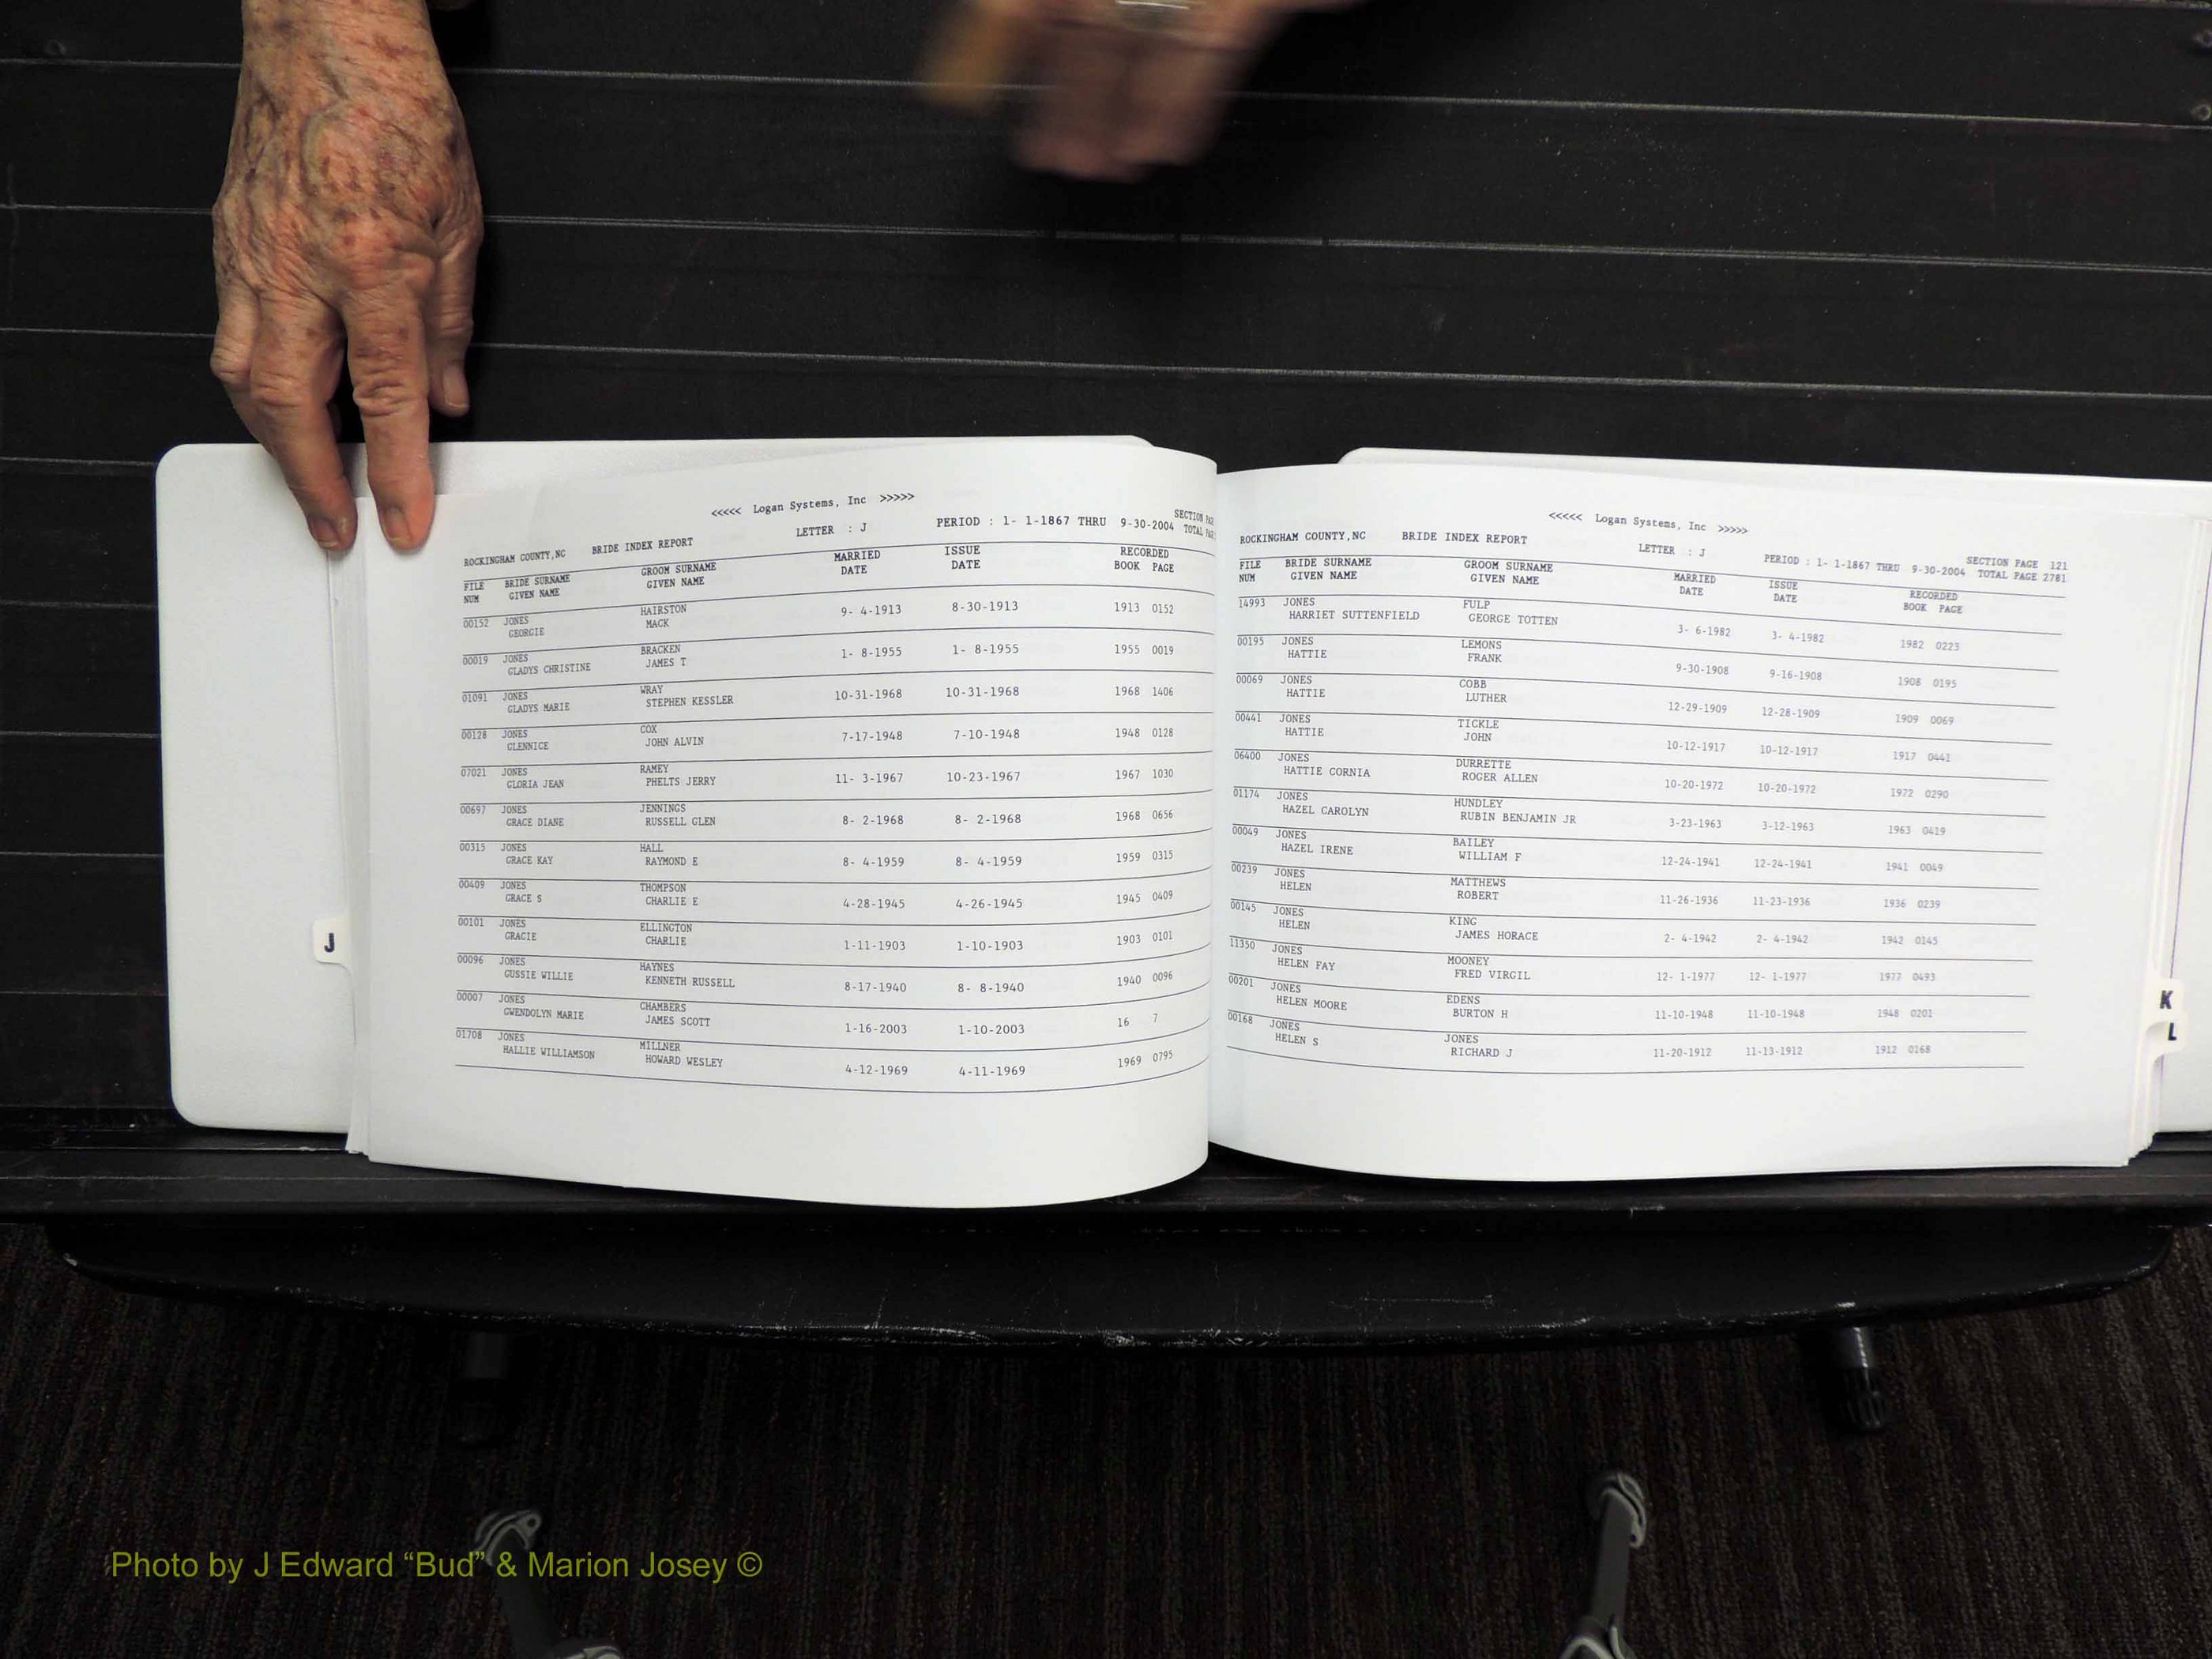 <<<<< Logan Systems, Inc >>>>>
ROCKINGHAM COUNTY,NC BRIDE INDEX REPORT LETTER : J PERIOD : 1- 1-1867 THRU 9-30-2004 SECTION TOTAL
FILE BRIDE SURNAME GROOM SURNAME MARRIED ISSUE RECORDED
NUM GIVEN NAME GIVEN NAME DATE DATE BOOK PAGE
00152 JONES HAIRSTON 9- 4-1913 8-30-1913 1913 0152
GEORGIE MACK
00019 JONES BRACKEN 1- 8-1955 1- 8-1955 1955 0019
GLADYS CHRISTINE JAMES T
01091 JONES WRAY 10-31-1968 10-31-1968 1968 1406
GLADYS MARIE STEPHEN KESSLER
00128 JONES COX 7-17-1948 7-10-1948 1948 0128
GLENNICE JOHN ALVIN
07021 JONES RAMEY 11- 3-1967 10-23-1967 1967 1030
GLORIA JEAN PHELTS JERRY
00697 JONES JENNINGS 8- 2-1968 8- 2-1968 1968 0656
GRACE DIANE RUSSELL GLEN
00315 JONES HALL 8- 4-1959 8- 4-1959 1959 0315
GRACE KAY RAYMOND E
00409 JONES THOMPSON 4-28-1945 4-26-1945 1945 0409
GRACE S CHARLIE E
00101 JONES ELLINGTON 1-11-1903 1-10-1903 1903 0101
GRACIE CHARLIE
00096 JONES HAYNES 8-17-1940 8- 8-1940 1940 0096
GUSSIE WILLIE KENNETH RUSSELL
00007 JONES CHAMBERS 1-16-2003 1-10-2003 16 7
GWENDOLYN MARIE JAMES SCOTT
01708 JONES MILLNER 4-12-1969 4-11-1969 1969 0795
HALLIE WILLIAMSON HOWARD WESLEY
J
<<<<< Logan Systems, Inc >>>>>
ROCKINGHAM COUNTY,NC BRIDE INDEX REPORT LETTER : J PERIOD : 1- 1-1867 THRU 9-30-2004 SECTION PAGE 121
TOTAL PAGE 2781
FILE BRIDE SURNAME GROOM SURNAME MARRIED ISSUE RECORDED
NUM GIVEN NAME GIVEN NAME DATE DATE BOOK PAGE
14993 JONES FULP 3- 6-1982 3- 4-1982 1982 0223
HARRIET SUTTENFIELD GEORGE TOTTEN
00195 JONES LEMONS 9-30-1908 9-16-1908 1908 0195
HATTIE FRANK
00069 JONES COBB 12-29-1909 12-28-1909 1909 0069
HATTIE LUTHER
00441 JONES TICKLE 10-12-1917 10-12-1917 1917 0441
HATTIE JOHN
06400 JONES DURRETTE 10-20-1972 10-20-1972 1972 0290
HATTIE CORNIA ROGER ALLEN
01174 JONES HUNDLEY 3-23-1963 3-12-1963 1963 0419
HAZEL CAROLYN RUBIN BENJAMIN JR
00049 JONES BAILEY 12-24-1941 12-24-1941 1941 0049
HAZEL IRENE WILLIAM F
00239 JONES MATTHEWS 11-26-1936 11-23-1936 1936 0239
HELEN ROBERT
00145 JONES KING 2- 4-1942 2- 4-1942 1942 0145
HELEN JAMES HORACE
11350 JONES MOONEY 12- 1-1977 12- 1-1977 1977 0493
HELEN FAY FRED VIRGIL
00201 JONES EDENS 11-10-1948 11-10-1948 1948 0201
HELEN MOORE BURTON H
00168 JONES JONES 11-20-1912 11-13-1912 1912 0168
HELEN S RICHARD J
K
L
Photo by J Edward “Bud” & Marion Josey ©